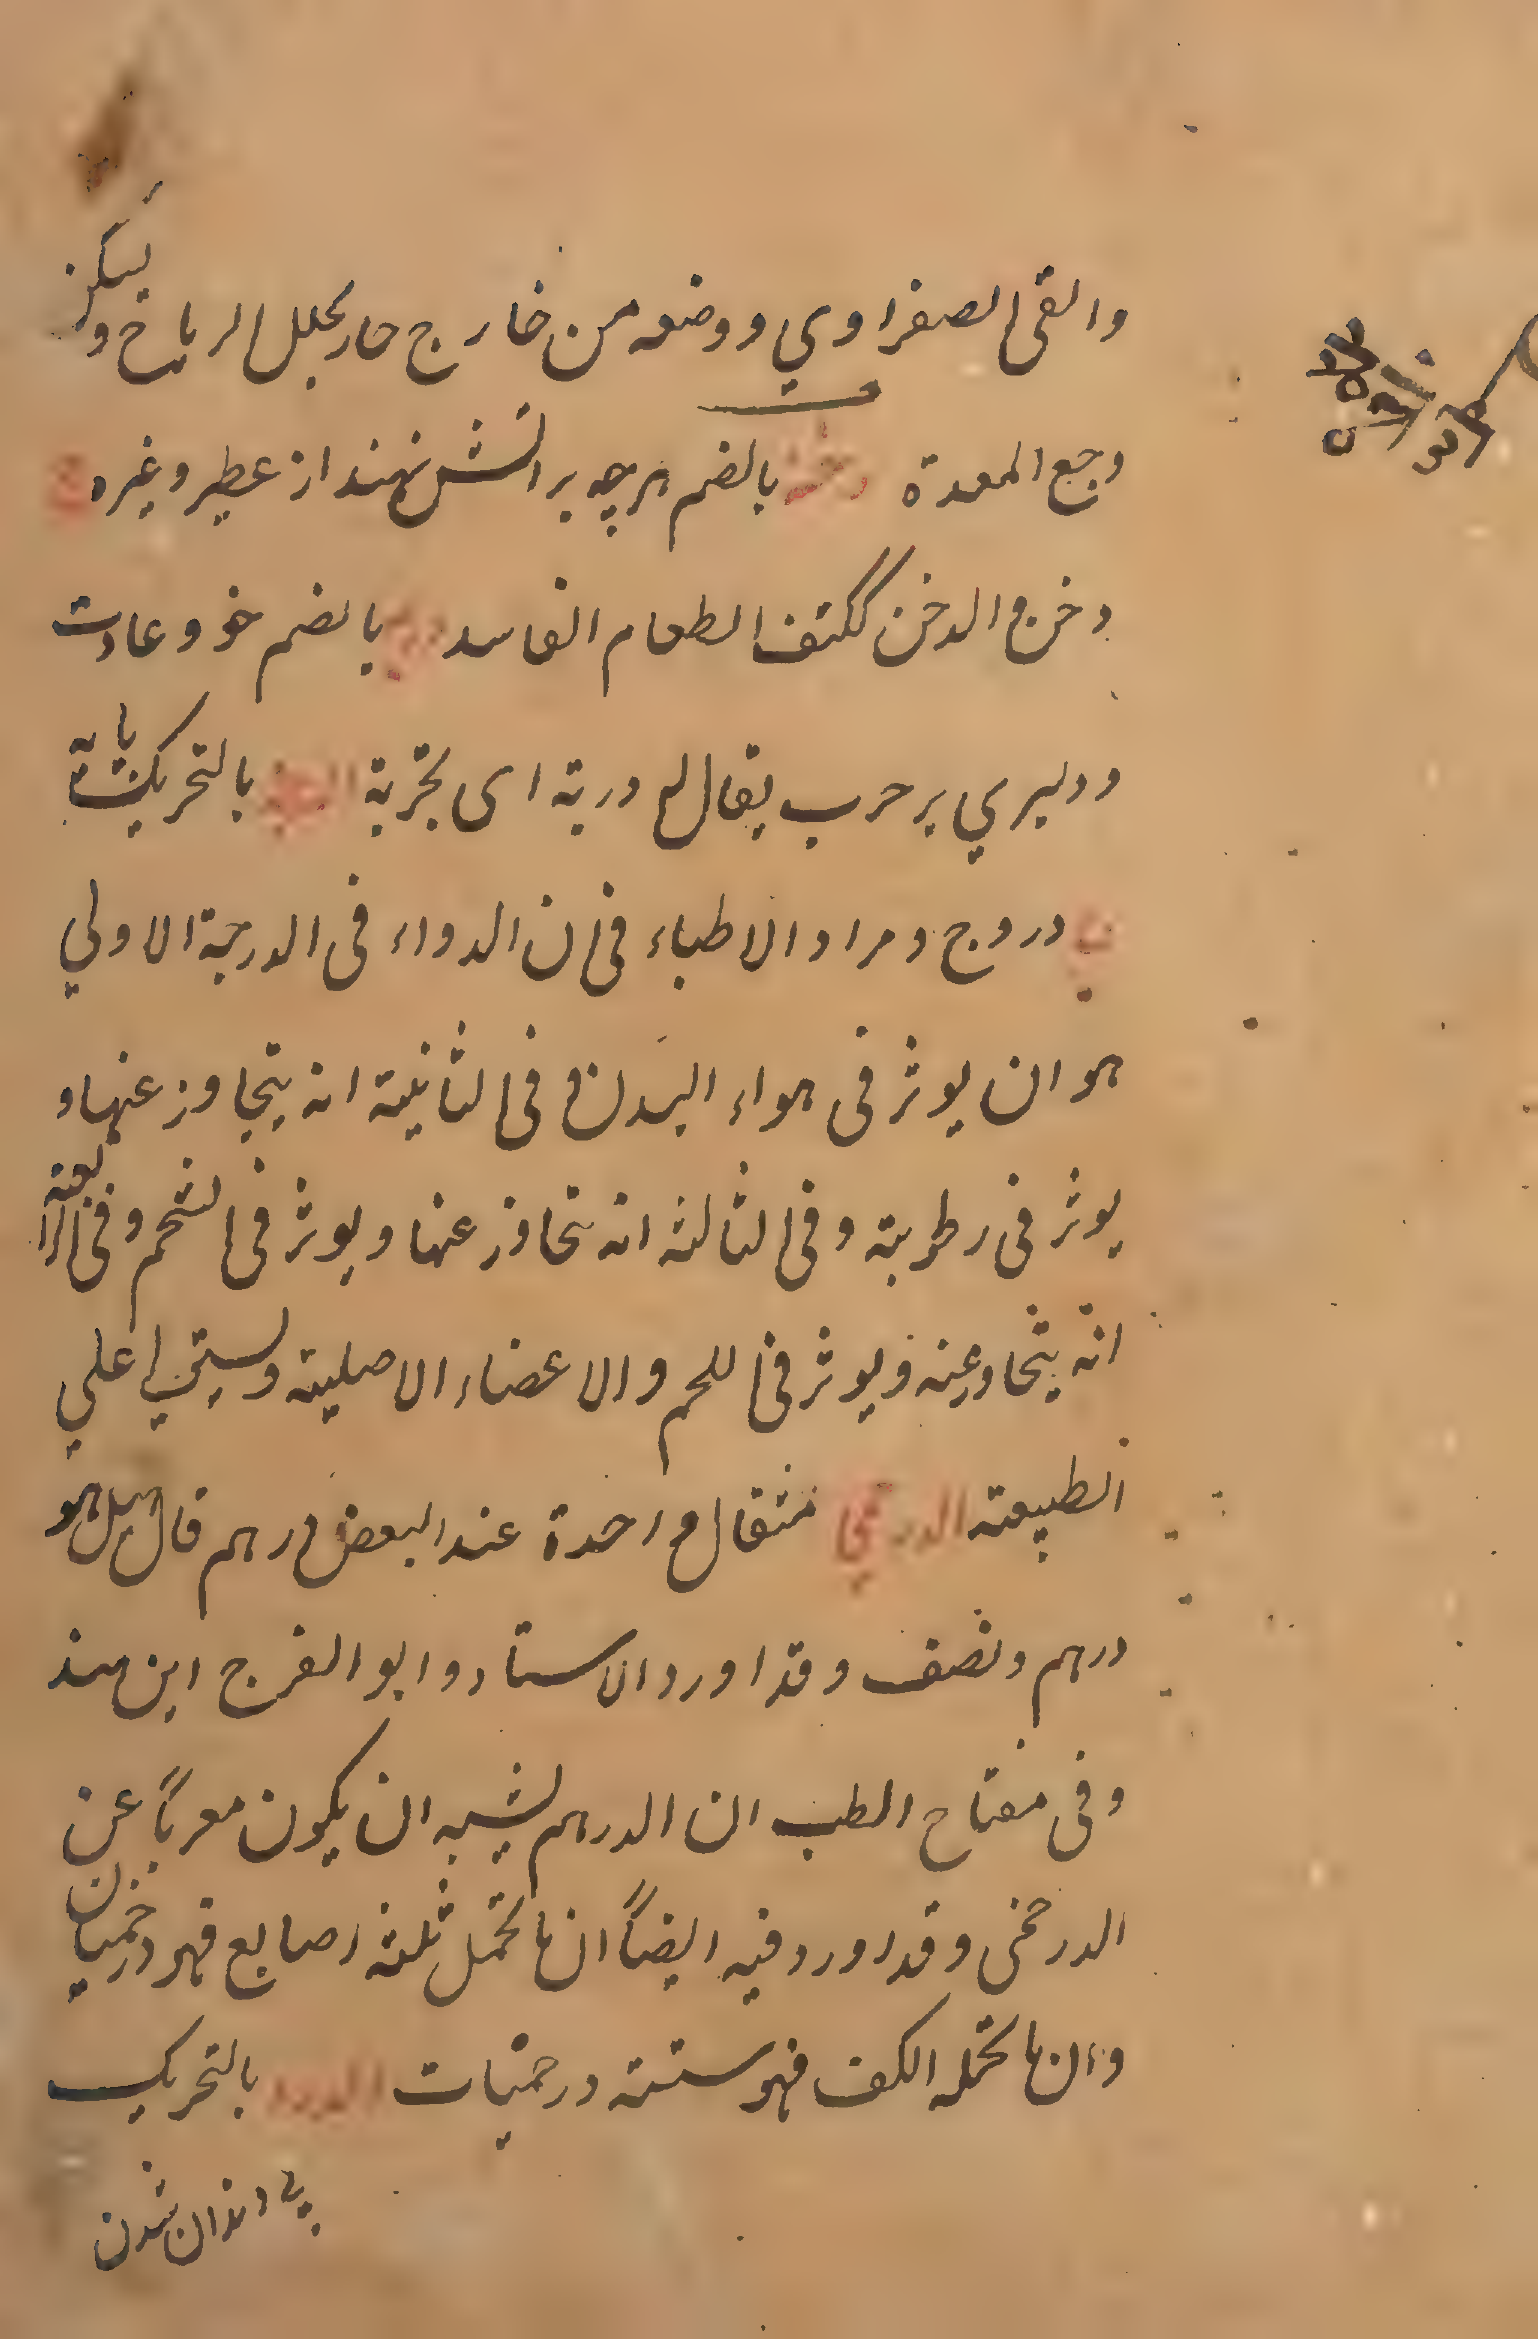 والقی الصفراوي ووضعه من خارج حار یحلل الریاح و یسکن
وجع المعدة بالضم هرچه بر اتش نهند از عطر و غیره
دخن والدخن ککتف الطعام الفاسد بالضم خو و عادت
و دلیری بر حرب یقال له دربة ای تجربة بالتحریک پایه
دروج و مراد الاطباء فی ان الدواء فی الدرجة الاولی
هو ان یوثر فی هواء البدن و فی الثانیة انه یتجاوز عنها و
یوثر فی رطوبته و فی الثالثه انه یتجاوز عنها و یوثر فی الشحم و فی الرابعة
انه یتجاوز عنه و یوثر فی اللحم و الاعضاء الاصلیته و یستولی علی
الطبیعته الدرخمی مثقال واحدة عند البعض درهم قال هو
درهم و نصف و قد اورد الاستاد و ابو الفرج ابن هند
و فی مفتاح الطب ان الدرهم یشبه ان یکون معرباً عن
الدرخمی و قد اورد فیه ایضاً ان ما تحمل ثلثه اصابع فهو درخمیان
و ان ما تحمله الکف فهو سته درخمیات الدرد بالتحریک
بی دندان شدن